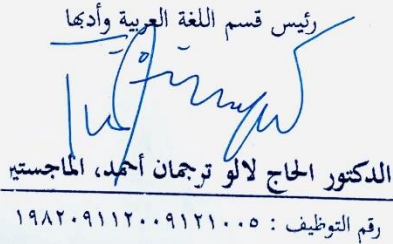 رئيس قسم اللغة العربية وأدبها
الدكتور الحاج لالو ترجمان أحمد، الماجستير
رقم التوظيف : ١٩٨٢٠٩١١٢٠٠٩١٢١٠٠٥